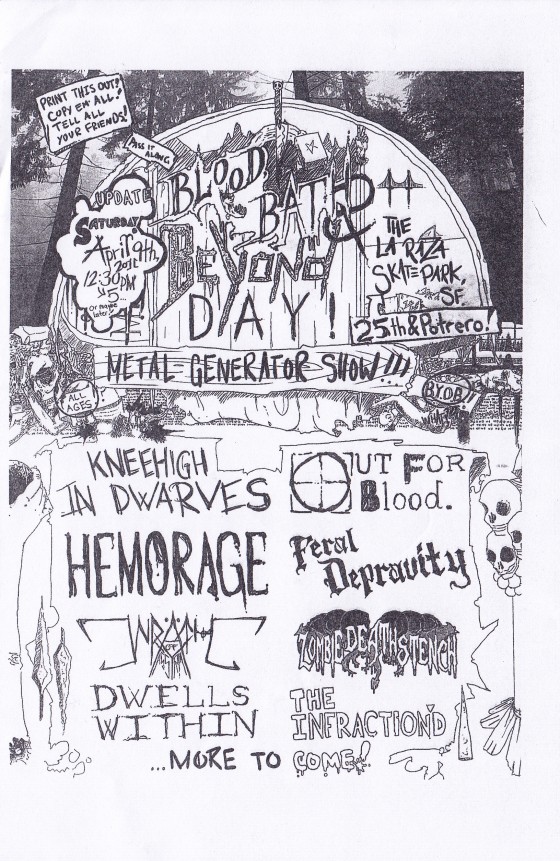 PRINT THIS OUT!
COPY EM ALL!
TELL ALL
YOUR FRIENDS!
PASS IT
ALONG
UPDATE
SATURDAY!
April 9th,
12:30PM
5...
Or maybe
later?
BLOOD
BATH
&
BEYOND
DAY!
THE
LA RAZA
SKATE PARK,
SF.
25th & Potrero!
METAL GENERATOR SHOW!!!
ALL
AGES!
B.Y.O.B.!!
KNEEHIGH
IN DWARVES
OUT FOR
Blood.
HEMORAGE
Feral
Depravity
ZOMBIE DEATHSTENCH
DWELLS
WITHIN
THE
INFRACTION'D
...MORE TO COME!